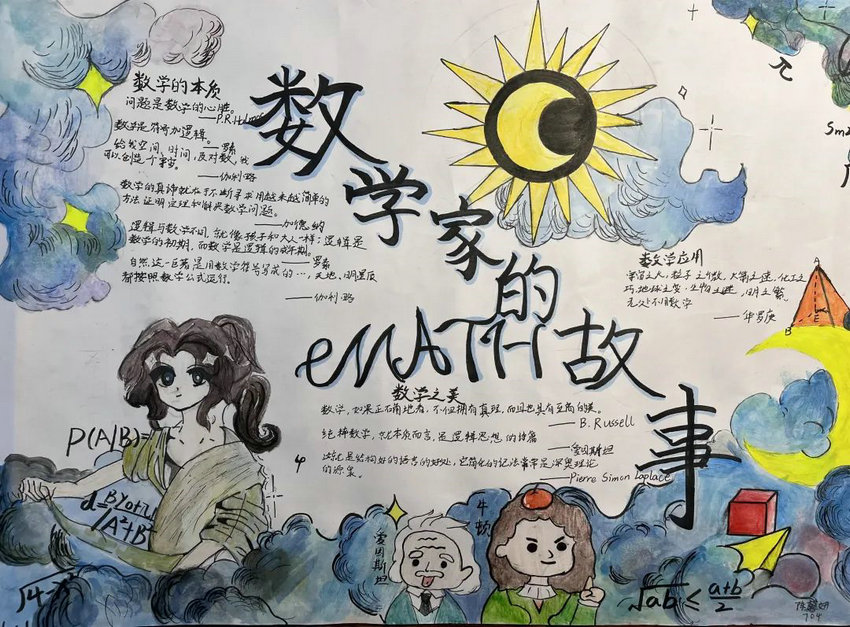 数学家的故事
MATH
数学的本质
问题是数学的心脏。
——P.R.Halmos
数学是符号加逻辑。
——罗素
给我空间、时间，及对数，我
可以创造一个宇宙。
——伽利略
数学的真谛就在于不断寻求用越来越简单的
方法证明定理和解决数学问题。
——加德纳
逻辑与数学不同，就像孩子和大人一样：逻辑是
数学的初期，而数学是逻辑的成年期。
——罗素
自然这一巨著是用数学符号写成的…，天地、日月星辰
都按照数学公式运行。
——伽利略
数学应用
宇宙之大，粒子之微，火箭之速，化工之
巧，地球之变，生物之谜，日月之繁，
无处不用数学
——华罗庚
A
B
E
数学之美
数学，如果正确地看，不但拥有真理，而且也具有至高的美。
——B. Russell
纯粹数学，就本质而言，是逻辑思想的诗篇
——爱因斯坦
这就是结构好的语言的好处，它简化的记法常常是深奥理论
的源泉。
——Pierre Simon Laplace
P(A|B)=
φ
爱因斯坦
牛顿
√ab ≤ a+b/2
704